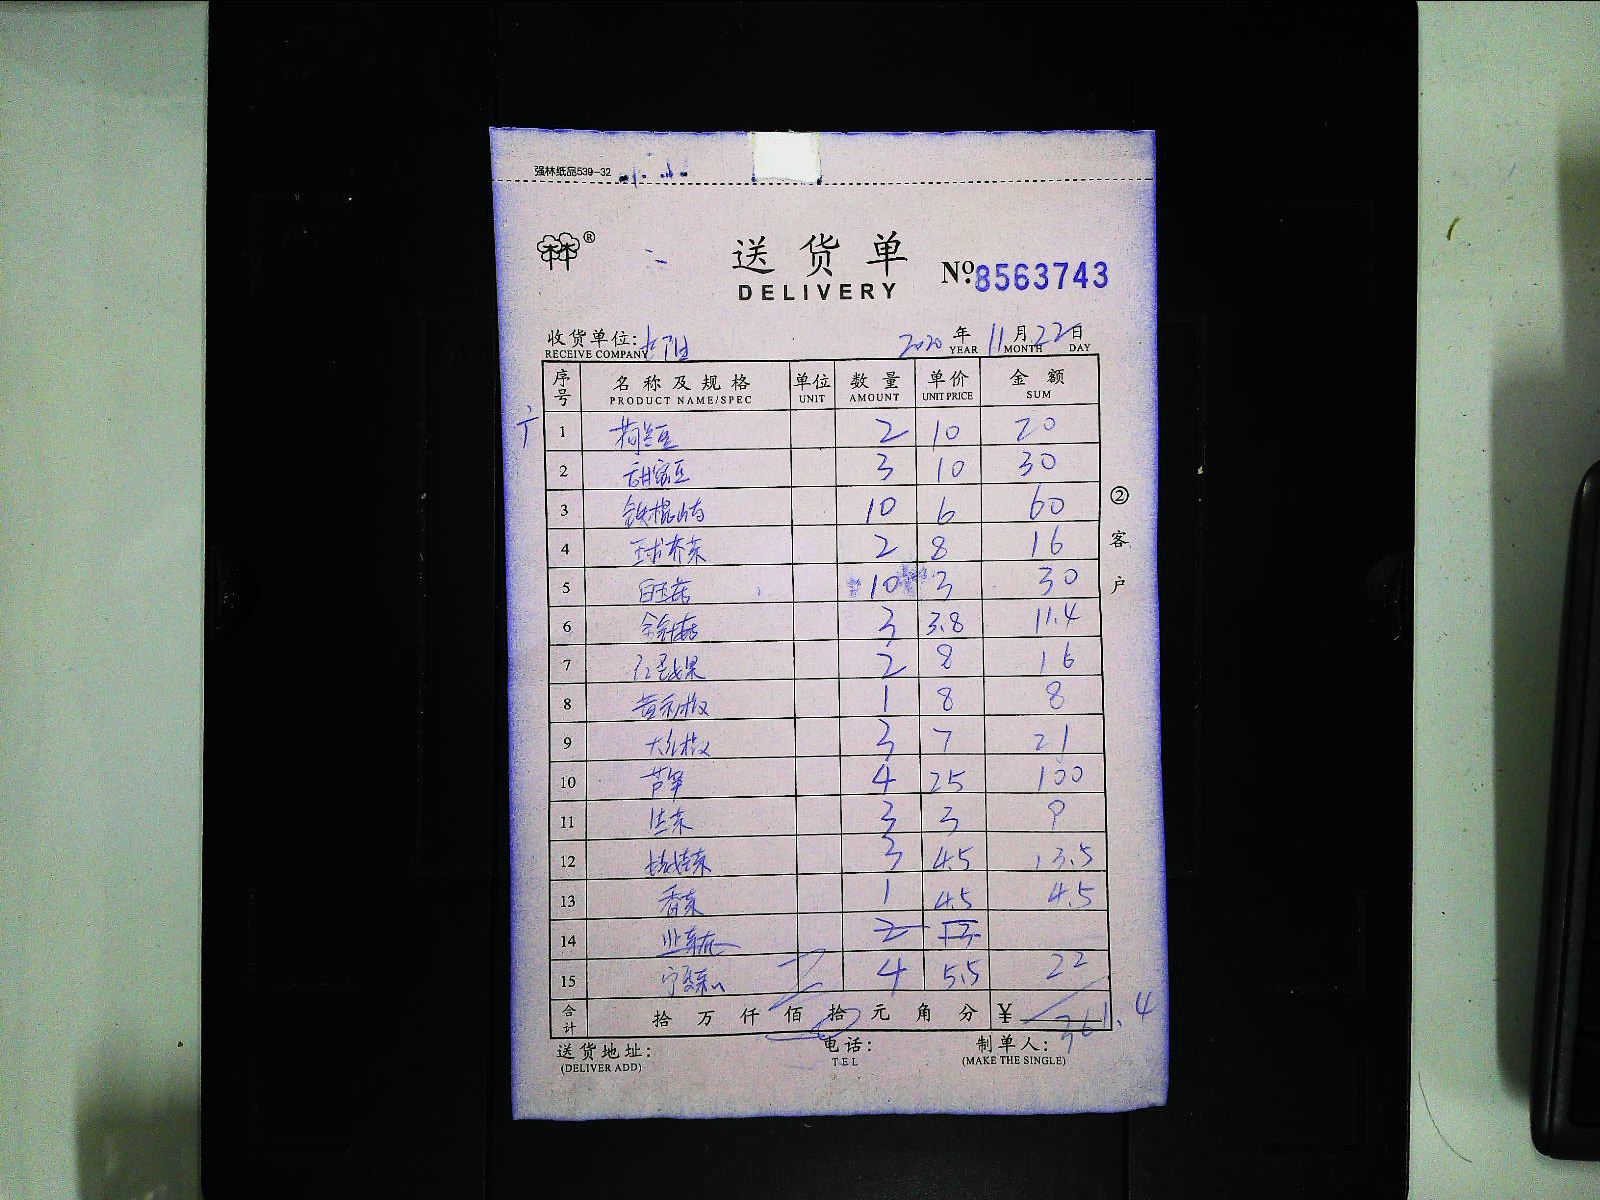 强林纸品539-32
林®
送货单
DELIVERY
№:8563743
收货单位:
RECEIVE COMPANY
2020年 11月 22日
YEAR MONTH DAY
序号 名称及规格 单位 数量 单价 金额
PRODUCT NAME/SPEC UNIT AMOUNT UNIT PRICE SUM
1 荷兰豆 2 10 20
2 甜蜜豆 3 10 30
3 铁棍山药 10 6 60
4 2 8 16
5 白玉菇 10 3 30
6 金针菇 3 3.8 11.4
7 2 8 16
8 黄彩椒 1 8 8
9 3 7 21
10 芦笋 4 25 100
11 生菜 3 3 9
12 3 4.5 13.5
13 香菜 1 4.5 4.5
14 2
15 4 5.5 22
合计 拾 万 仟 佰 拾 元 角 分 ¥ 361.4
②客户
送货地址: 电话: 制单人:
(DELIVER ADD) TEL (MAKE THE SINGLE)